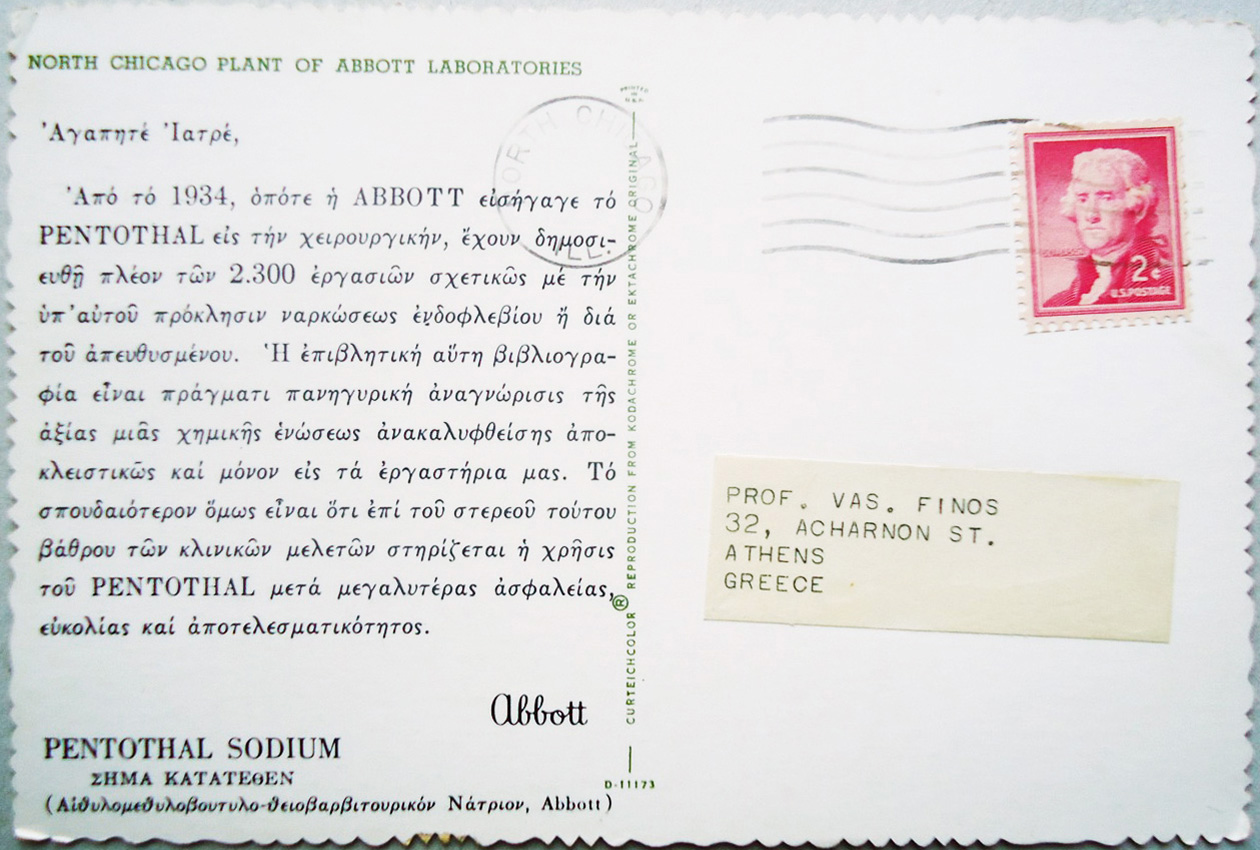 NORTH CHICAGO PLANT OF ABBOTT LABORATORIES
Ἀγαπητέ Ἰατρέ,
Ἀπό τό 1934, ὁπότε ἡ ABBOTT εἰσήγαγε τό
PENTOTHAL εἰς τήν χειρουργικήν, ἔχουν δημοσι-
ευθῆ πλέον τῶν 2.300 ἐργασιῶν σχετικῶς μέ τήν
ὑπ' αὐτοῦ πρόκλησιν ναρκώσεως ἐνδοφλεβίου ἤ διά
τοῦ ἀπευθυσμένου. Ἡ ἐπιβλητική αὕτη βιβλιογρα-
φία εἶναι πράγματι πανηγυρική ἀναγνώρισις τῆς
ἀξίας μιᾶς χημικῆς ἑνώσεως ἀνακαλυφθείσης ἀπο-
κλειστικῶς καί μόνον εἰς τά ἐργαστήρια μας. Τό
σπουδαιότερον ὅμως εἶναι ὅτι ἐπί τοῦ στερεοῦ τούτου
βάθρου τῶν κλινικῶν μελετῶν στηρίζεται ἡ χρῆσις
τοῦ PENTOTHAL μετά μεγαλυτέρας ἀσφαλείας,
εὐκολίας καί ἀποτελεσματικότητος.
Abbott
PENTOTHAL SODIUM
ΣΗΜΑ ΚΑΤΑΤΕΘΕΝ
(Αἰθυλομεθυλοβουτυλο-θειοβαρβιτουρικόν Νάτριον, Abbott)
PRINTED
IN
U.S.A.
CURTEICHCOLOR ® REPRODUCTION FROM KODACHROME OR EKTACHROME ORIGINAL
D-11173
NORTH CHICAGO
ILL.
2¢
U.S. POSTAGE
PROF. VAS. FINOS
32, ACHARNON ST.
ATHENS
GREECE